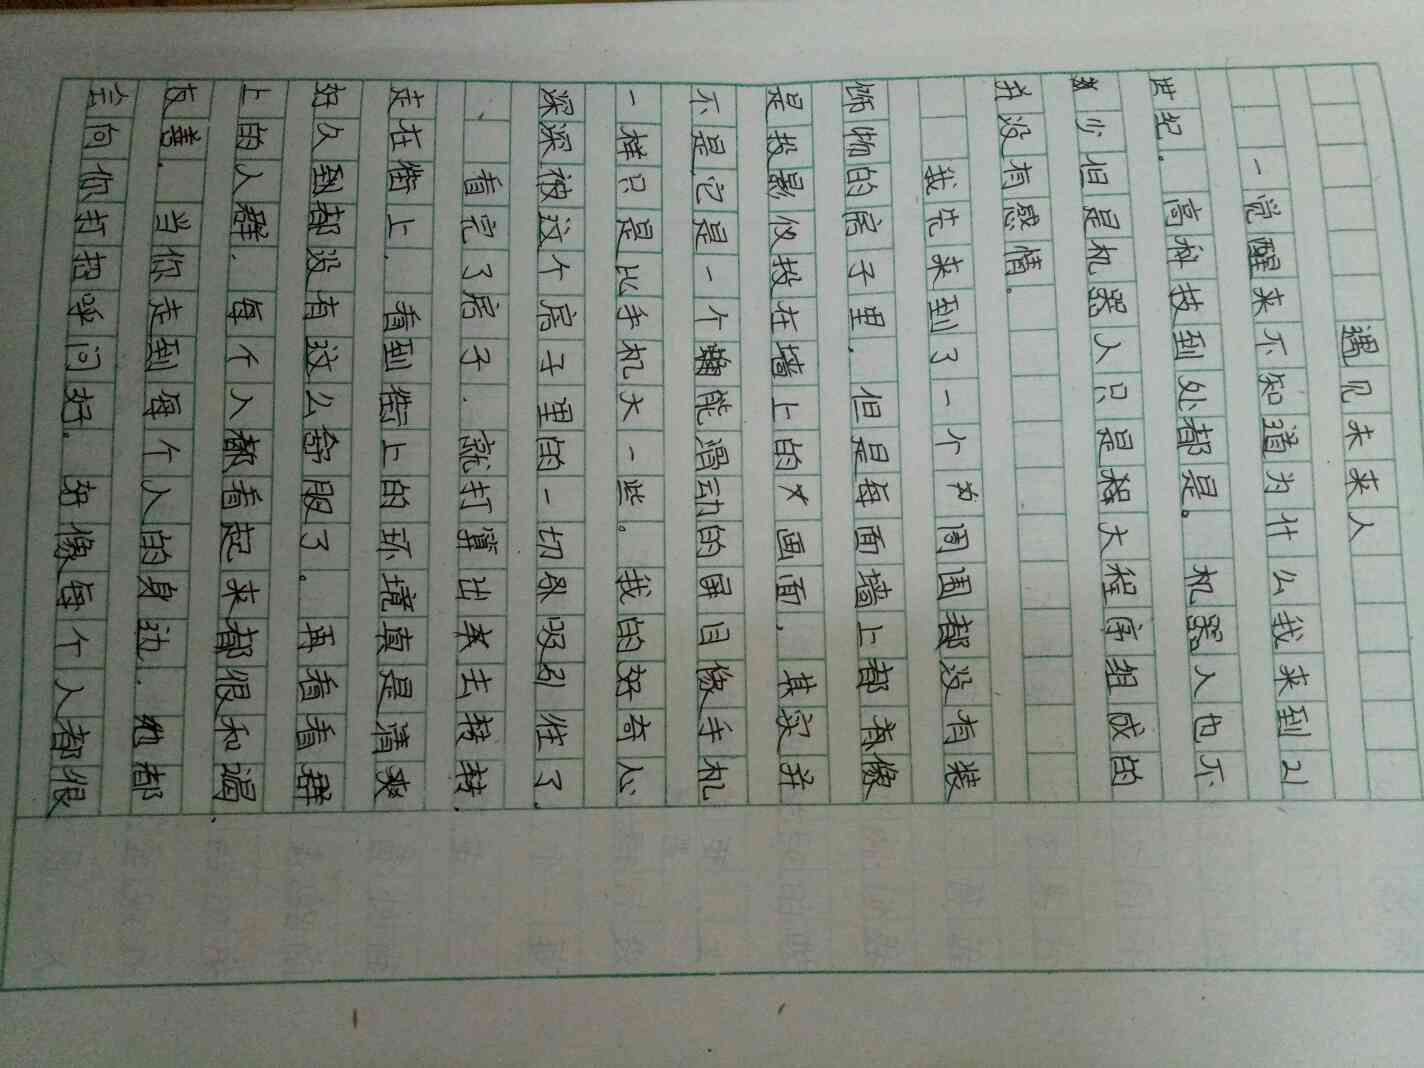 遇见未来人
一觉醒来不知道为什么我来到21
世纪.高科技到处都是。机器人也不
少但是机器人只是大程序组成的
并没有感情。
我先来到了一个周围都没有装
饰物的房子里.但是每面墙上都有像
是投影仪投在墙上的画面,其实并
不是它是一个能滑动的屏目像手机
一样只是比手机大一些。我的好奇心
深深被这个房子里的一切吸引住了.
、看完了房子.就打算出来去转转.
走在街上.看到街上的环境真是清爽
好久到都没有这么舒服了。再看看群
上的人群.每个人都看起来都很和谒.
友善.当你走到每个人的身边.他都
会向你打招呼问好.好像每个人都很